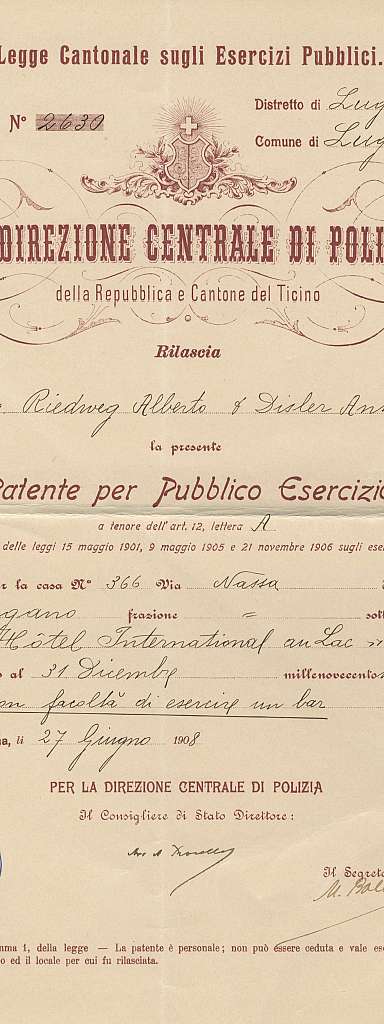 Legge Cantonale sugli Esercizi Pubblici.
Nº 2630
Distretto di Lug
Comune di Lug
DIREZIONE CENTRALE DI POLI
della Repubblica e Cantone del Ticino
Rilascia
Riedweg Alberto & Disler Ann
la presente
Patente per Pubblico Esercizio
a tenore dell'art. 12, lettera A
delle leggi 15 maggio 1901, 9 maggio 1905 e 21 novembre 1906 sugli eser
er la casa Nº 366 Via Nassa
gano frazione = sott
Hôtel International au Lac
o al 31 Dicembre millenovecento
on facoltà di esercire un bar
na, li 27 Giugno 1908
PER LA DIREZIONE CENTRALE DI POLIZIA
Il Consigliere di Stato Direttore:
Il Segreta
mma 1, della legge — La patente è personale; non può essere ceduta e vale esc
o ed il locale per cui fu rilasciata.